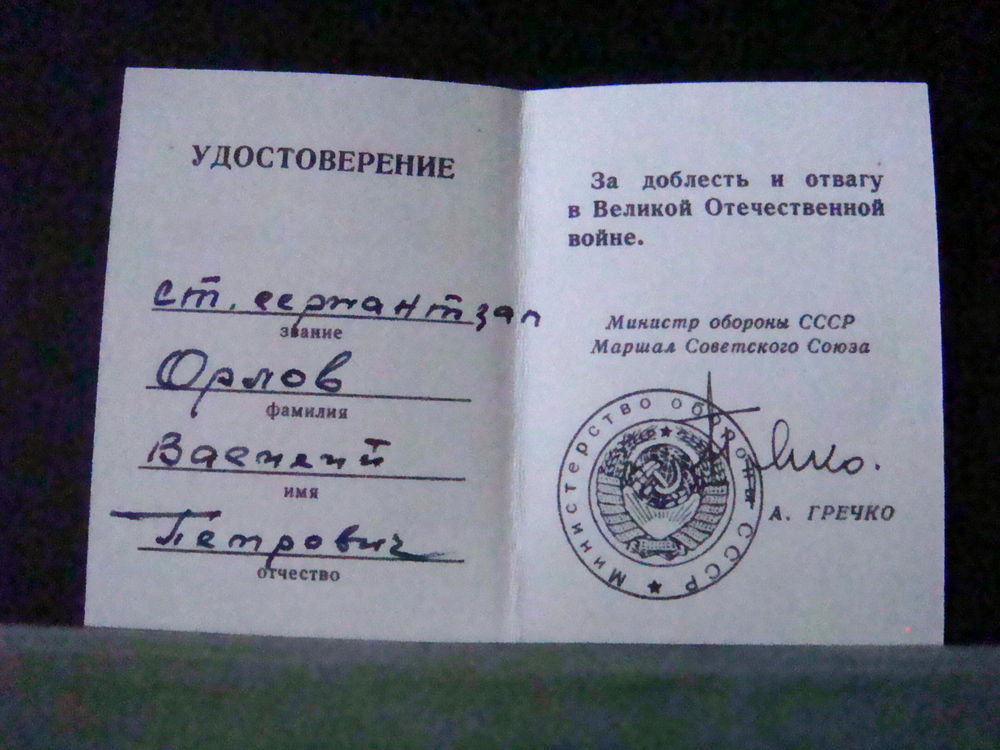 УДОСТОВЕРЕНИЕ
ст. сержант зап
звание
Орлов
фамилия
Василий
имя
Петрович
отчество
За доблесть и отвагу
в Великой Отечественной
войне.
Министр обороны СССР
Маршал Советского Союза
Министерство обороны СССР
А. ГРЕЧКО